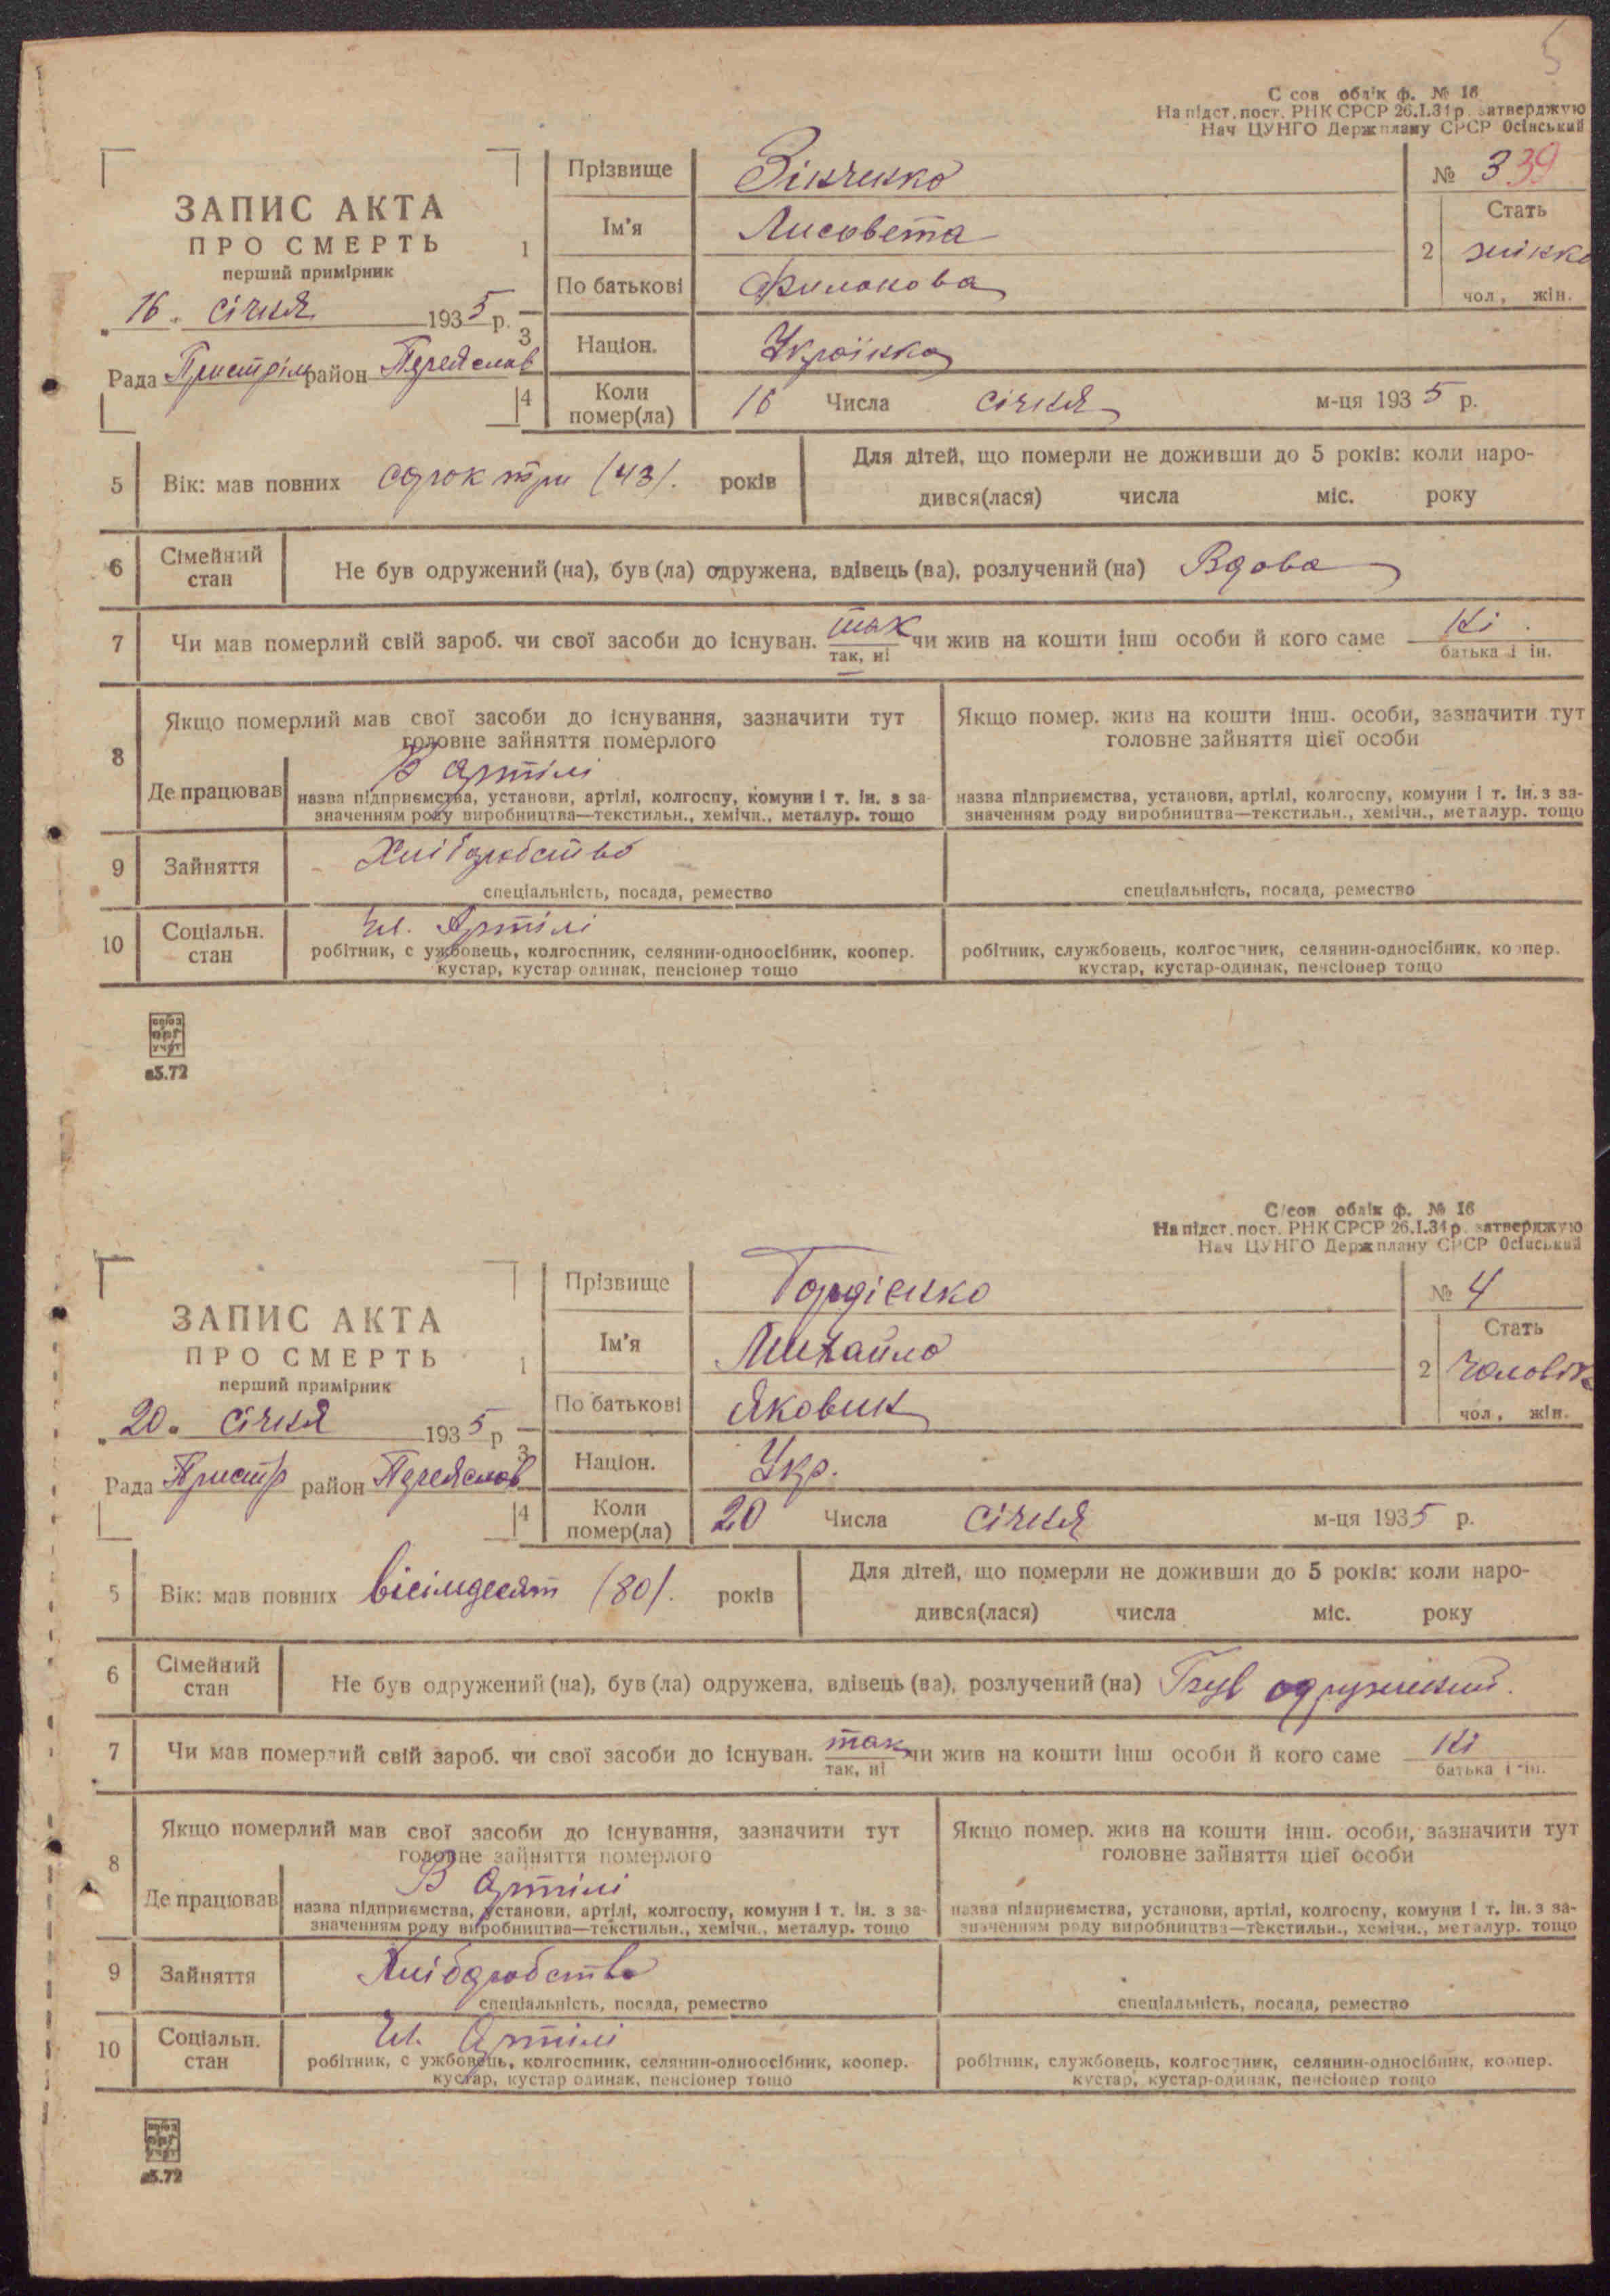 5
С сов облік ф. № 16
На підст. пост. РНК СРСР 26.І.31 р. затверджую
Нач ЦУНГО Держплану СРСР Осінський
ЗАПИС АКТА
ПРО СМЕРТЬ
перший примірник
16. січня 1935 р.
Рада Пристріл район Переяслав
1 Прізвище Зінченко
Ім'я Лисовета
По батькові Филонова
№ 3 39
2 Стать жінка
чол, жін.
3 Націон. Українка
4 Коли помер(ла) 16 Числа січня м-ця 1935 р.
5 Вік: мав повних сорок три (43). років
Для дітей, що померли не доживши до 5 років: коли наро-
дився(лася) числа міс. року
6 Сімейний стан Не був одружений (на), був (ла) одружена, вдівець (ва), розлучений (на) Вдова
7 Чи мав померлий свій зароб. чи свої засоби до існуван. так чи жив на кошти інш особи й кого саме Ні.
так, ні батька і ін.
8 Якщо померлий мав свої засоби до існування, зазначити тут
головне зайняття померлого
Якщо помер. жив на кошти інш. особи, зазначити тут
головне зайняття цієї особи
Де працював В артілі
назва підприємства, установи, артілі, колгоспу, комуни і т. ін. з за-
значенням роду виробництва—текстильн., хемічн., металур. тощо
назва підприємства, установи, артілі, колгоспу, комуни і т. ін. з за-
значенням роду виробництва—текстильн., хемічн., металур. тощо
9 Зайняття Хлібробство
спеціальність, посада, ремество
спеціальність, посада, ремество
10 Соціальн. стан Чл. Артілі
робітник, с ужбовець, колгоспник, селянин-одноосібник, коопер.
кустар, кустар одинак, пенсіонер тощо
робітник, службовець, колгоспник, селянин-односібник, коопер.
кустар, кустар-одинак, пенсіонер тощо
союз
орг
учет
а5.72
С/сов облік ф. № 16
На підст. пост. РНК СРСР 26.І.31 р. затверджую
Нач ЦУНГО Держплану СРСР Осінський
ЗАПИС АКТА
ПРО СМЕРТЬ
перший примірник
20. січня 1935 р
Рада Пристр район Переяслав
1 Прізвище Гордієнко
Ім'я Михайло
По батькові Якович
№ 4
2 Стать Чоловік
чол, жін.
3 Націон. Укр.
4 Коли помер(ла) 20 Числа січня м-ця 1935 р.
5 Вік: мав повних вісімдесят (80). років
Для дітей, що померли не доживши до 5 років: коли наро-
дився(лася) числа міс. року
6 Сімейний стан Не був одружений (на), був (ла) одружена, вдівець (ва), розлучений (на) Був одружений.
7 Чи мав померлий свій зароб. чи свої засоби до існуван. так чи жив на кошти інш особи й кого саме Ні
так, ні батька і ін.
8 Якщо померлий мав свої засоби до існування, зазначити тут
головне зайняття померлого
Якщо помер. жив на кошти інш. особи, зазначити тут
головне зайняття цієї особи
Де працював В артілі
назва підприємства, установи, артілі, колгоспу, комуни і т. ін. з за-
значенням роду виробництва—текстильн., хемічн., металур. тощо
назва підприємства, установи, артілі, колгоспу, комуни і т. ін. з за-
значенням роду виробництва—текстильн., хемічн., металур. тощо
9 Зайняття Хлібробство
спеціальність, посада, ремество
спеціальність, посада, ремество
10 Соціальн. стан Чл. Артілі
робітник, с ужбовець, колгоспник, селянин-одноосібник, коопер.
кустар, кустар одинак, пенсіонер тощо
робітник, службовець, колгоспник, селянин-односібник, коопер.
кустар, кустар-одинак, пенсіонер тощо
союз
орг
учет
а5.72